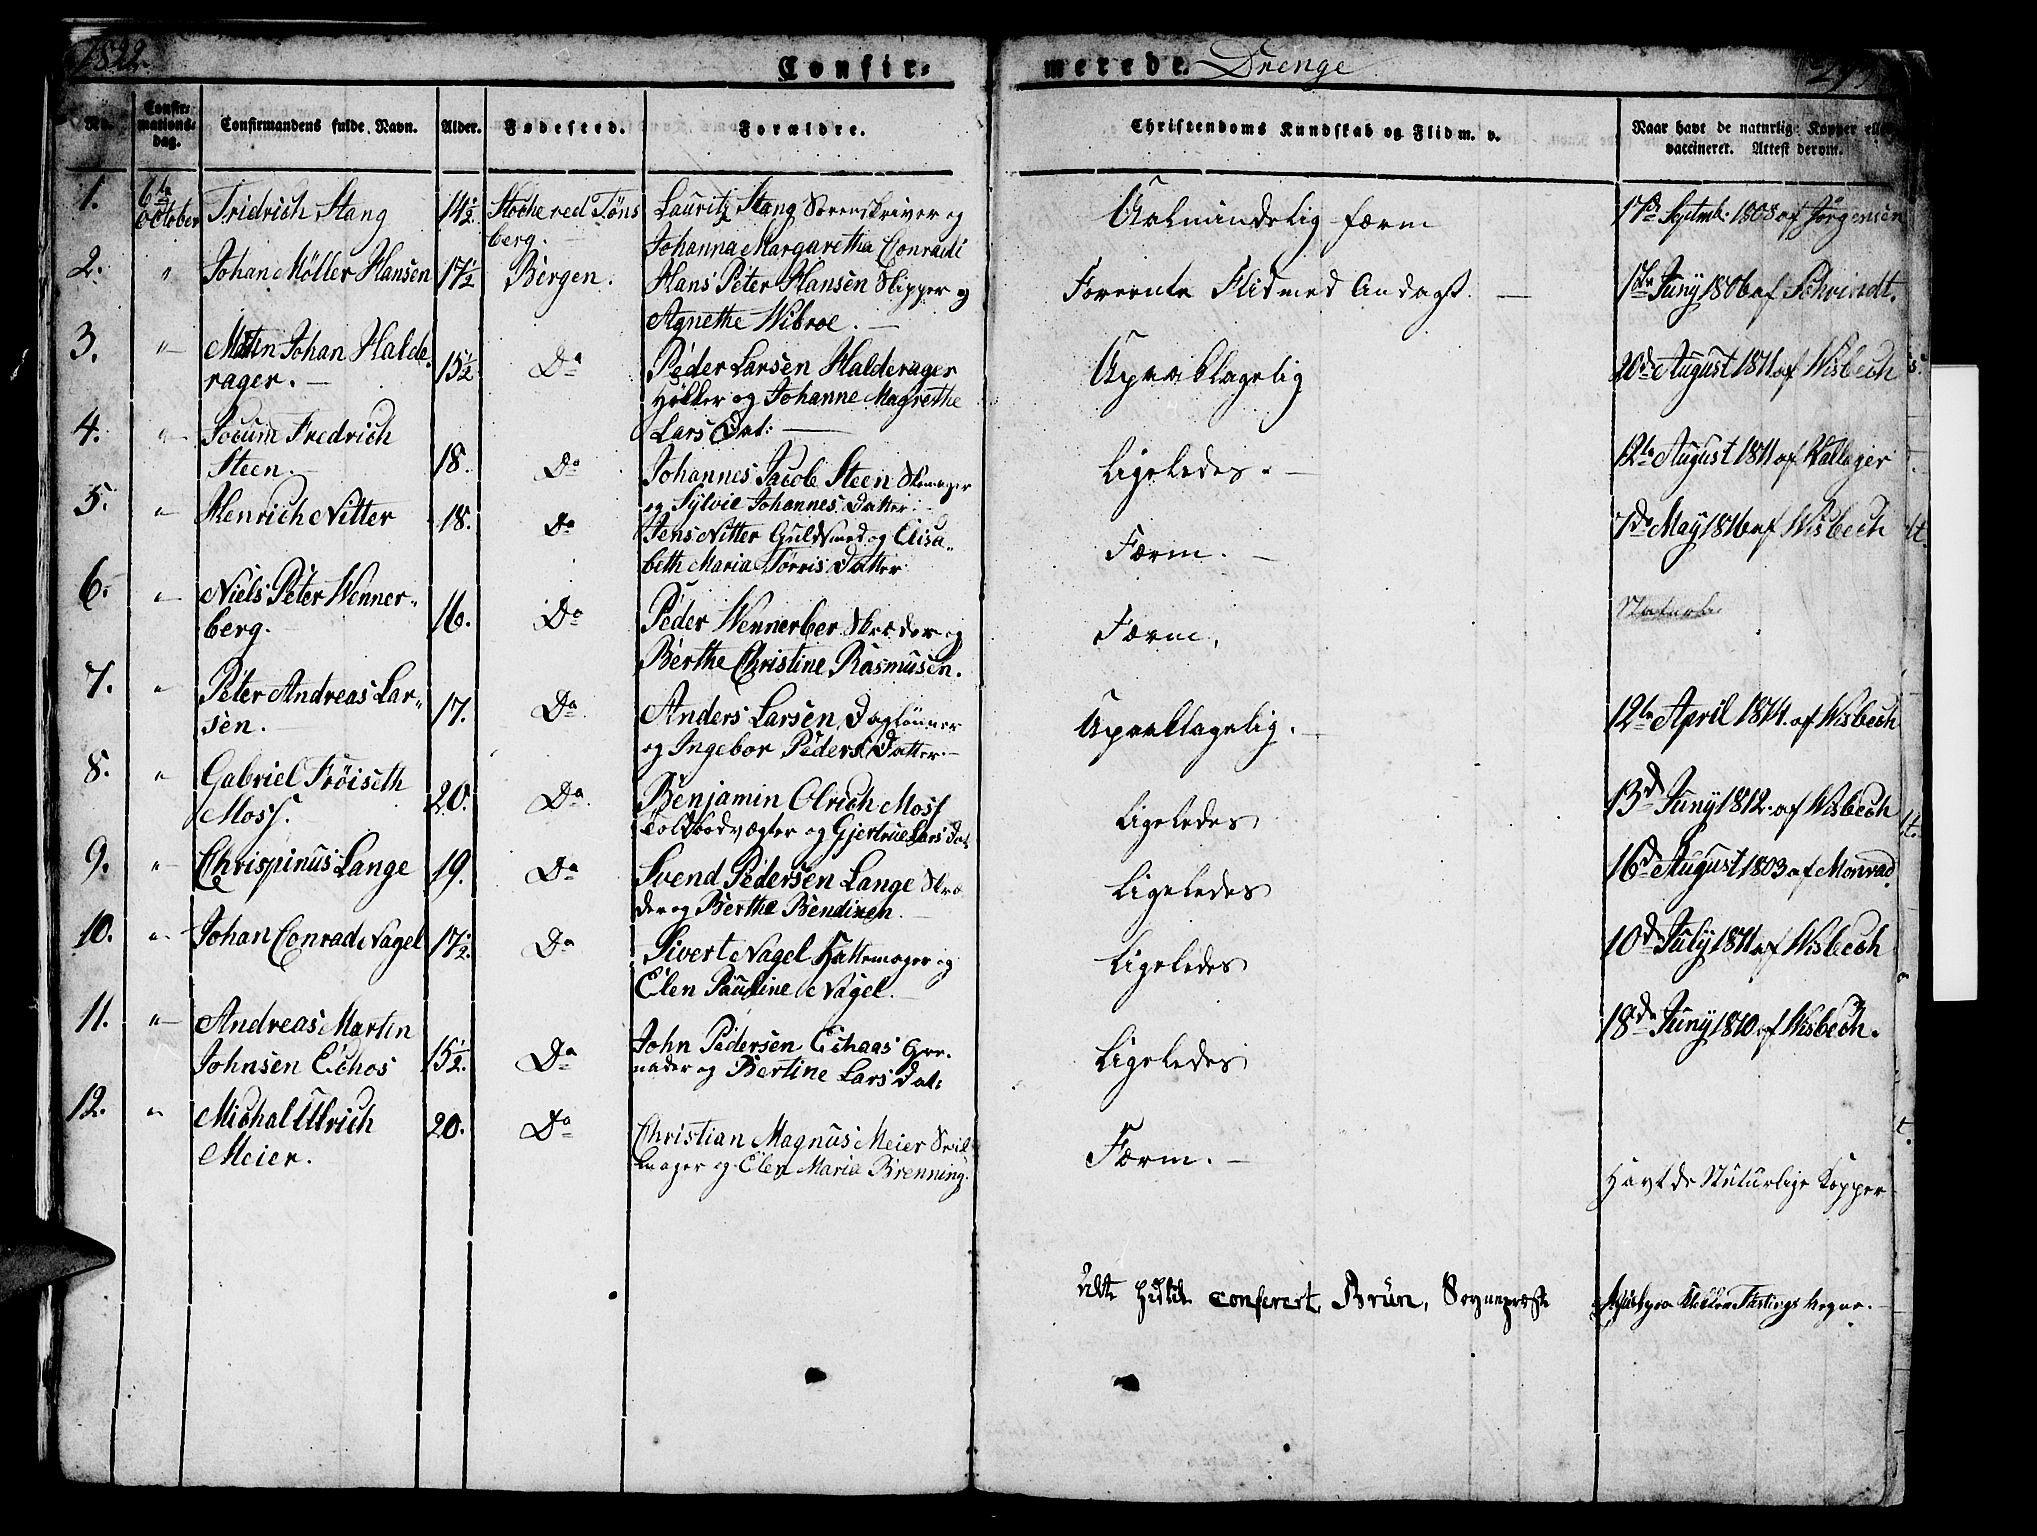 1822.
Confir=
merede Drenge
No.
Confir=
mations=
dag.
Confirmandens fulde Navn.
Alder.
Fødested.
Forældre.
Christendoms Kundskab og Flid m. v.
Naar havt de naturlig: Kopper eller
vaccineret. Attest derom.
1.
6te
October
Fridrich Stang
14½.
Stoche ved Töns
berg.
Lauritz Stang Sorenskriver og
Johanna Margaretha Conradi
Ualmindelig färm
17de Septmb: 1808 af Jörgensen
2.
"
Johan Möller Hansen
17½
Bergen.
Hans Peter Hansen Skipper og
Agnethe Wibroe. —
Foreente Flid med Andagt. —
17de Juny 1806 af Schvindt.
3.
"
Johan Halde
rager. —
15½
Do
Peder Larsen Halderager
Hökker og Johanne Magrethe
Lars Dat: —
Upaaklagelig
20de August 1811 af Wisbech
4.
"
Jocum Fredrich
Steen. —
18.
Do
Johannes Jacob Steen Skomager
og Sylvie Johannes Datter: —
Ligeledes. —
12te August 1811 af Wallager
5.
"
Henrich Nitter
18.
Do
Jens Nitter Guldsmed og Elisa„
beth Maria Törris Datter
Færm. —
7de May 1816 af Wisbech
6.
"
Niels Peter Wenner„
berg.
16.
Do
Peder Wennerber Skræder og
Berthe Christine Rasmusen.
Færm.
7.
"
Peter Andreas Lar„
sen.
17.
Do
Anders Larsen Daglönner
og Ingebor Peders Datter. —
Upaaklagelig. —
12te April 1814. af Wisbech
8.
"
Gabriel Fröiseth
Moss.
20.
Do
Benjamin Olrich Moss
Toldbodvægter og Gjertrue Lars Dat
Ligeledes
13de Juny 1812. af Wisbech
9.
"
Chrispinus Lange
19.
Do
Svend Pedersen Lange Skræ
der og Berthe Bendixen. —
Ligeledes
16de August 1803 af Monrad
10.
"
Johan Conrad Nagel
17½.
Do
Sivert Nagel Hattemager og
Elen Pauline Nagel. —
Ligeledes
10de July 1811 af Wisbech
11.
"
Andreas Martin
Johnsen Echos
15½.
Do
John Pedersen Echaas Gre„
nader og Bertine Lars Dat:
Ligeledes
18de Juny 1810 af Wisbech.
12.
"
Michal Ulrich
Meier.
20.
Do
Christian Magnus Meier Seil
mager og Elen Maria Brenning.
Færm. —
Havt de Naturlige Kopper
confereret, Brün, Sognepræst